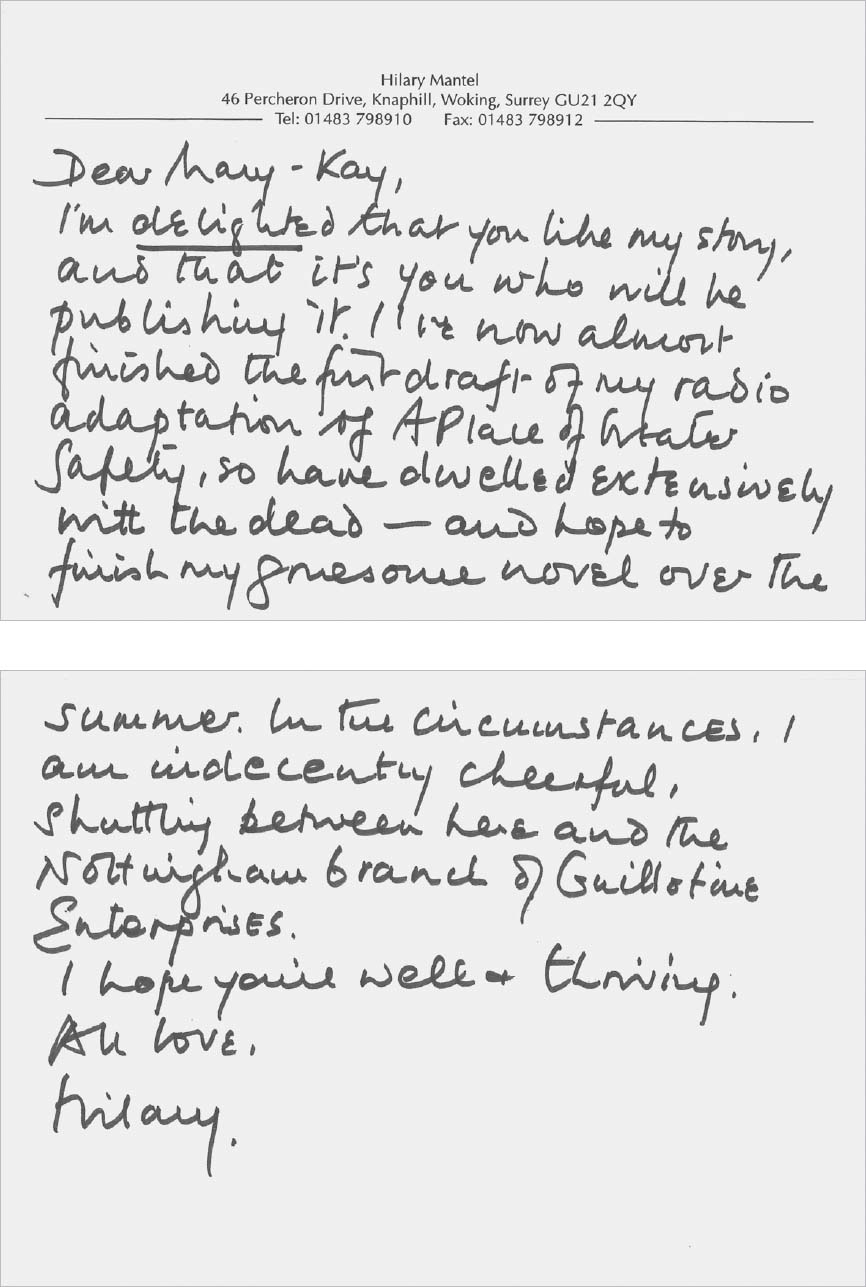 Hilary Mantel
46 Percheron Drive, Knaphill, Woking, Surrey GU21 2QY
Tel: 01483 798910 Fax: 01483 798912
Dear Mary-Kay,
I'm delighted that you like my story,
and that it's you who will be
publishing it. I've now almost
finished the first draft of my radio
adaptation of A Place of Greater
Safety, so have dwelled extensively
with the dead — and hope to
finish my gruesome novel over the
summer. In the circumstances, I
am indecently cheerful,
shuttling between here and the
Nottingham branch of Guillotine
Enterprises.
I hope you're well + thriving.
All love,
Hilary.